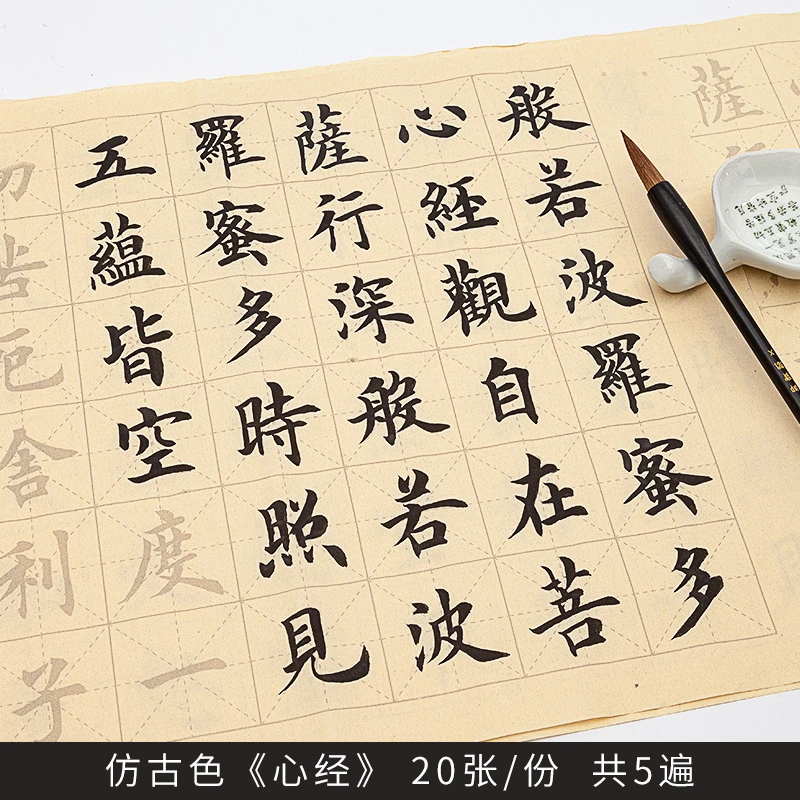 薩
般若波羅蜜多
心經觀自在菩
薩行深般若波
羅蜜多時照見
五蘊皆空度一
切苦厄舍利子
仿古色《心经》 20张/份 共5遍